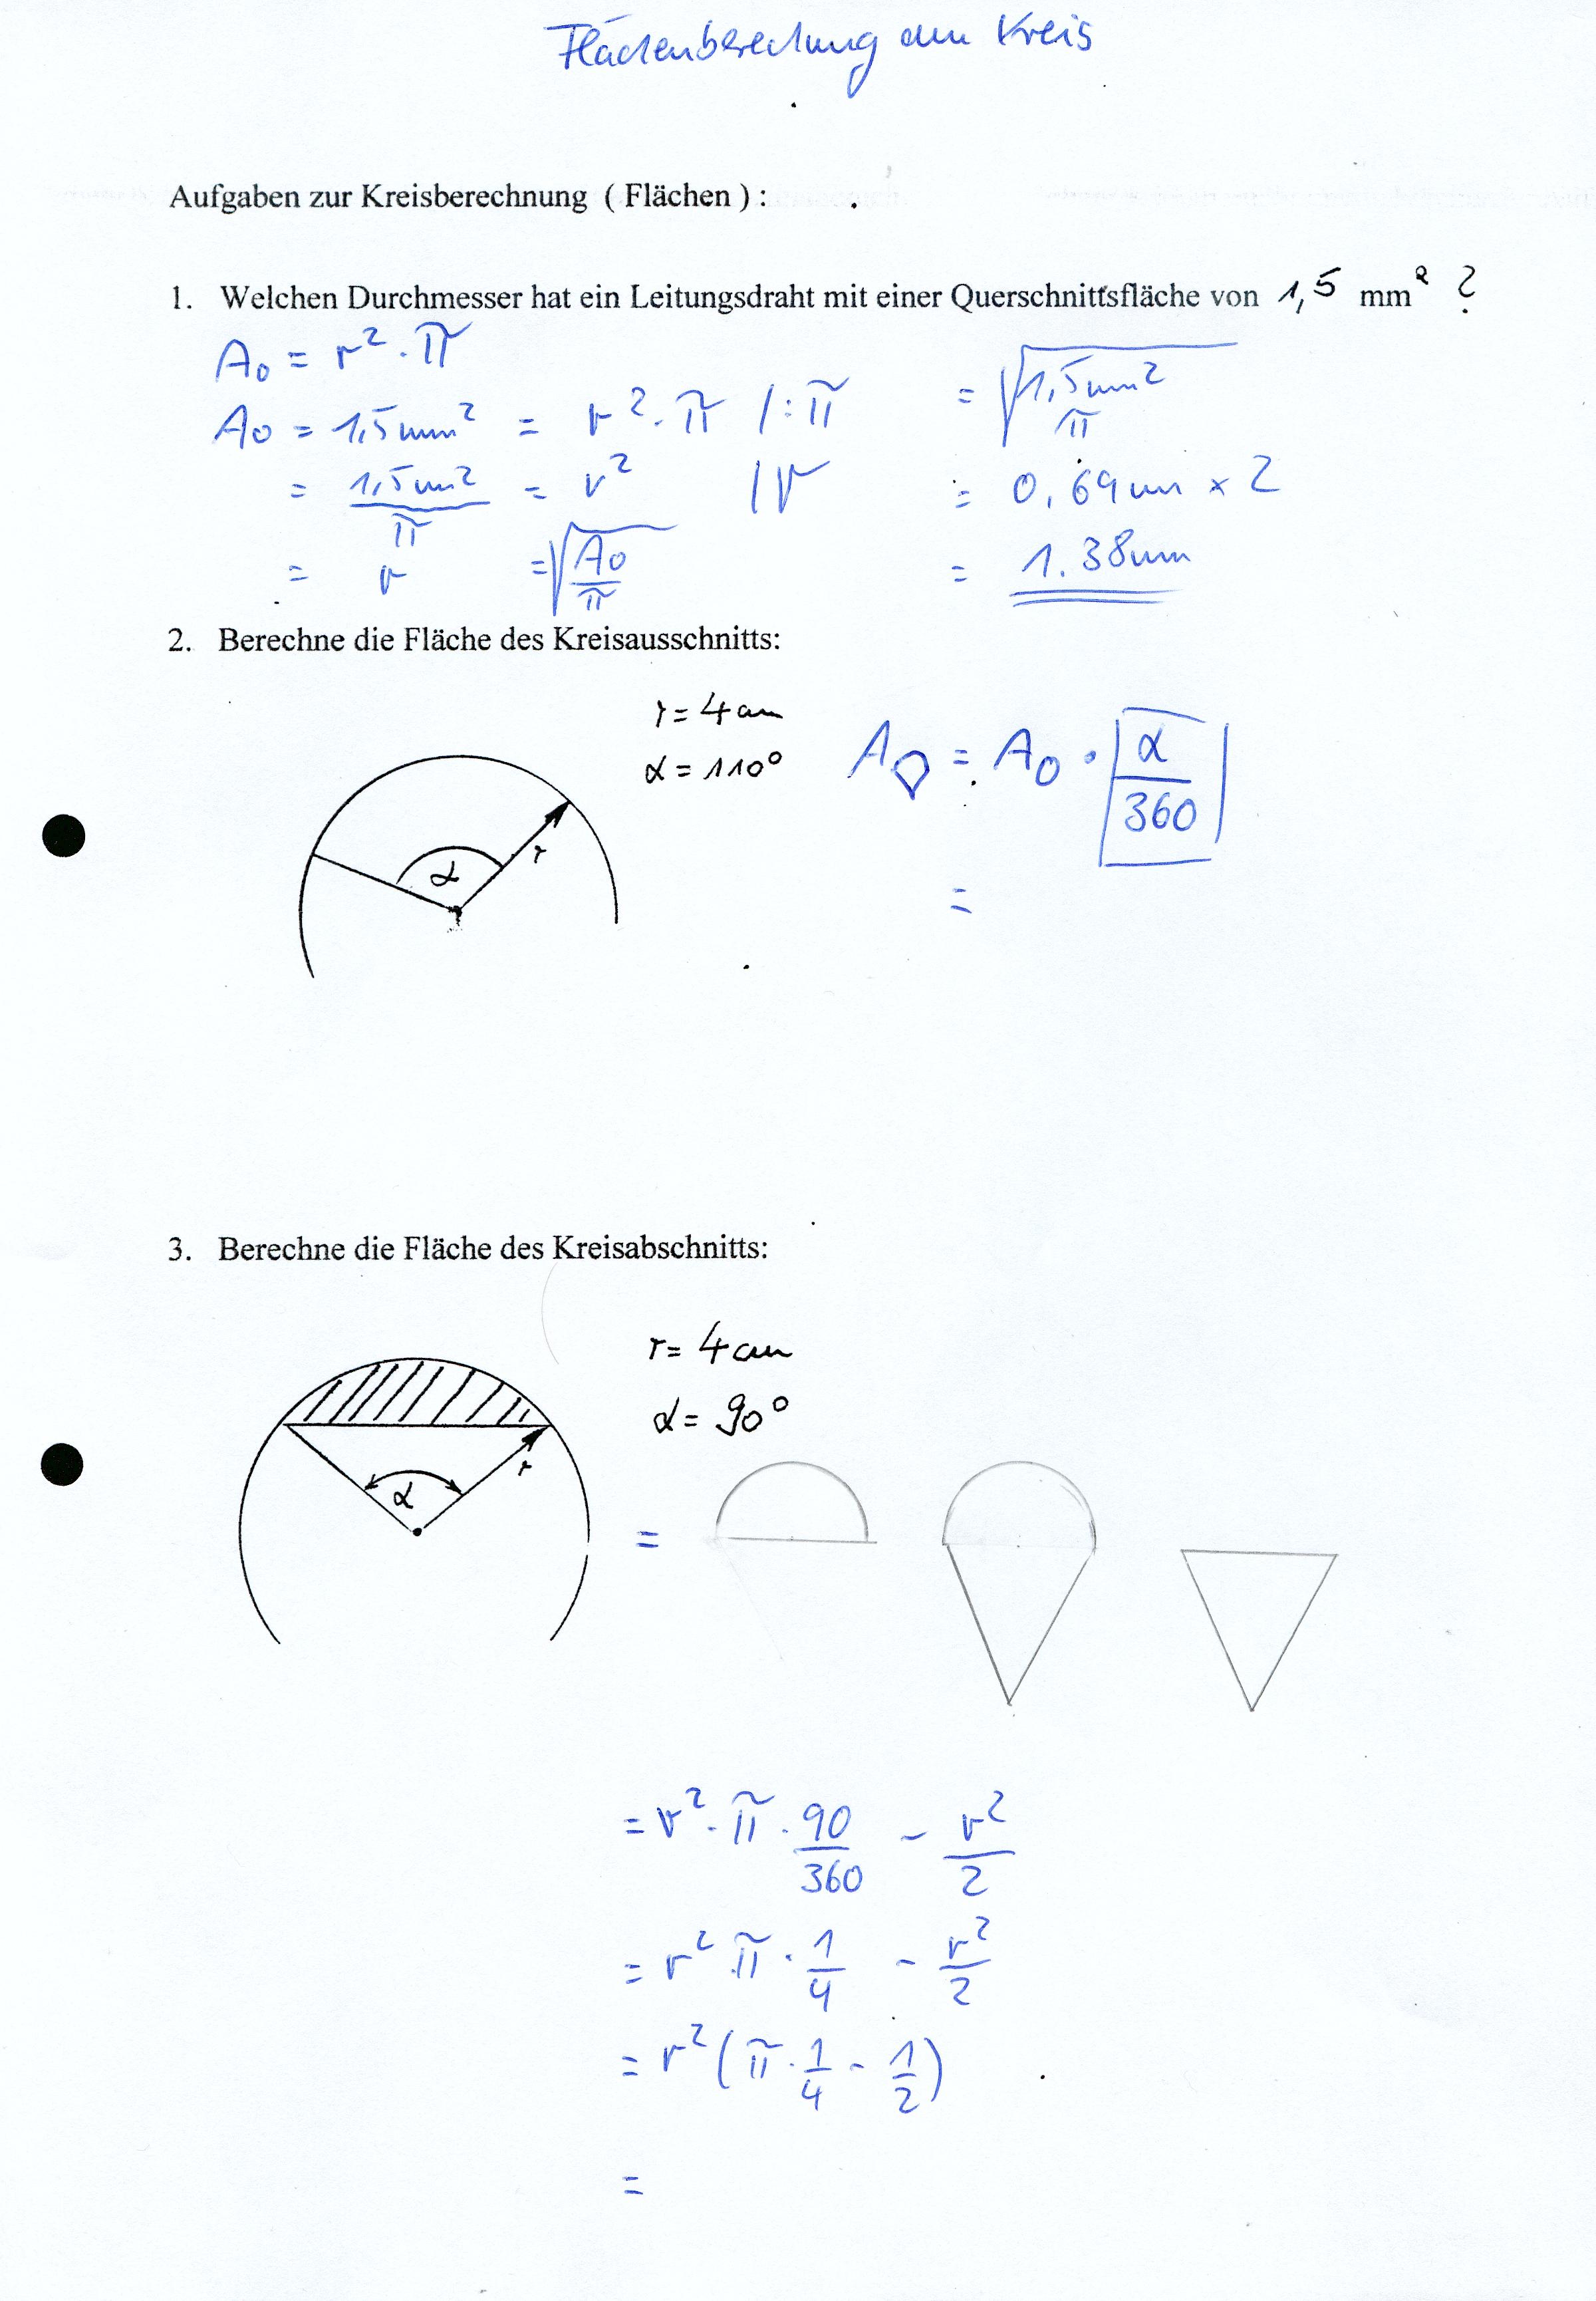 Flächenberechnung am Kreis
Aufgaben zur Kreisberechnung ( Flächen ) :
1. Welchen Durchmesser hat ein Leitungsdraht mit einer Querschnittsfläche von 1,5 mm² ?
A₀ = r² · π
A₀ = 1,5mm² = r² · π /:π
= 1,5mm²/π = r² /√
= r = √(A₀/π)
= √(1,5mm²/π)
= 0,69mm × 2
= 1.38mm
2. Berechne die Fläche des Kreisausschnitts:
r = 4cm
α = 110°
α
r
A = A₀ · α/360
=
3. Berechne die Fläche des Kreisabschnitts:
r = 4cm
α = 90°
α
r
=
= r² · π · 90/360 - r²/2
= r² π · 1/4 - r²/2
= r² (π · 1/4 - 1/2)
=